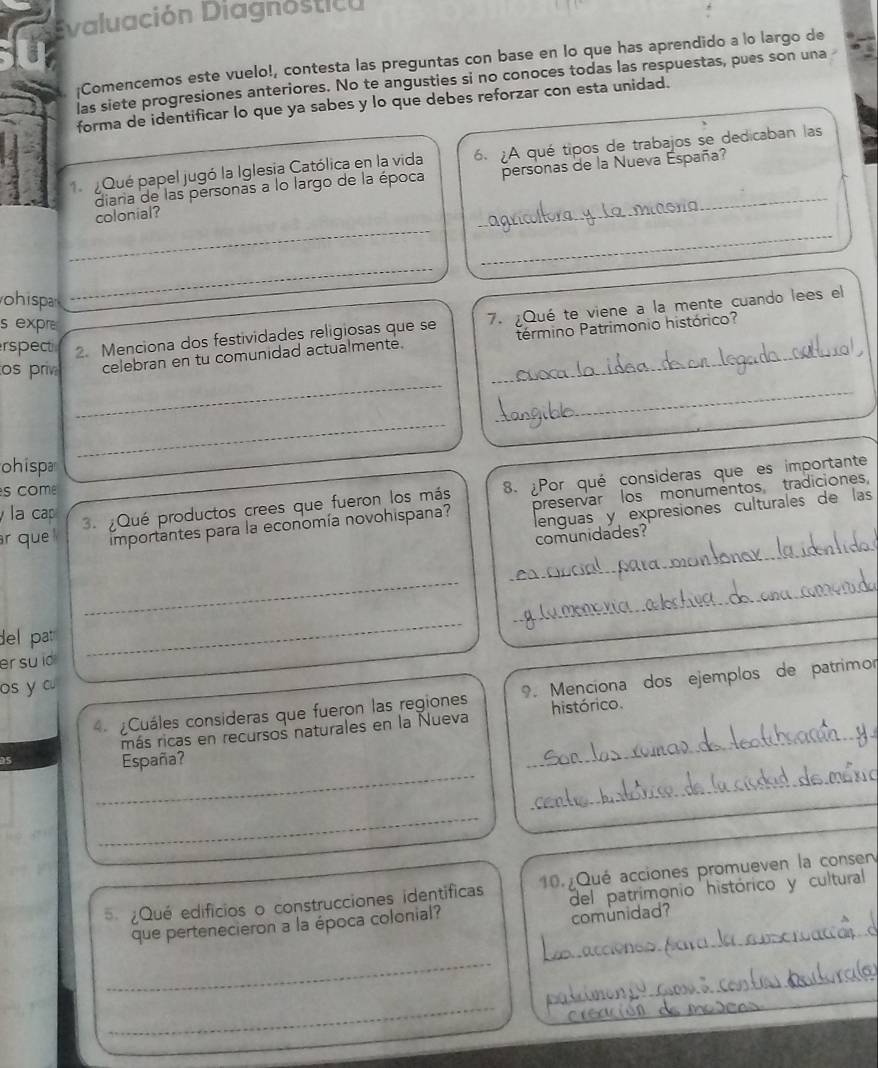 Evaluación Diagnóstica
su
¡Comencemos este vuelo!, contesta las preguntas con base en lo que has aprendido a lo largo de
las siete progresiones anteriores. No te angusties si no conoces todas las respuestas, pues son una
forma de identificar lo que ya sabes y lo que debes reforzar con esta unidad.
1. ¿Qué papel jugó la Iglesia Católica en la vida
diaria de las personas a lo largo de la época
colonial?
2. Menciona dos festividades religiosas que se
celebran en tu comunidad actualmente.
3. ¿Qué productos crees que fueron los más
importantes para la economía novohispana?
4. ¿Cuáles consideras que fueron las regiones
más ricas en recursos naturales en la Nueva
España?
5. ¿Qué edificios o construcciones identificas
que pertenecieron a la época colonial?
6. ¿A qué tipos de trabajos se dedicaban las
personas de la Nueva España?
agricultura y la mineria
7. ¿Qué te viene a la mente cuando lees el
término Patrimonio histórico?
evoca la idea de un legado cultural,
tangible
8. ¿Por qué consideras que es importante
preservar los monumentos, tradiciones,
lenguas y expresiones culturales de las
comunidades?
es crucial para mantener la identida
de una comunida
9. Menciona dos ejemplos de patrimon
histórico.
Son las ruinas de y
centro histórico de la ciudad de méxic
10. ¿Qué acciones promueven la conserv
del patrimonio histórico y cultural
comunidad?
Las acciones para la
patrimonio centros culturales
creación de
vohispan
s expre
erspect
os priv
ohispa
es come
y la cap
ar que
del pat
er su id
os y cu
as